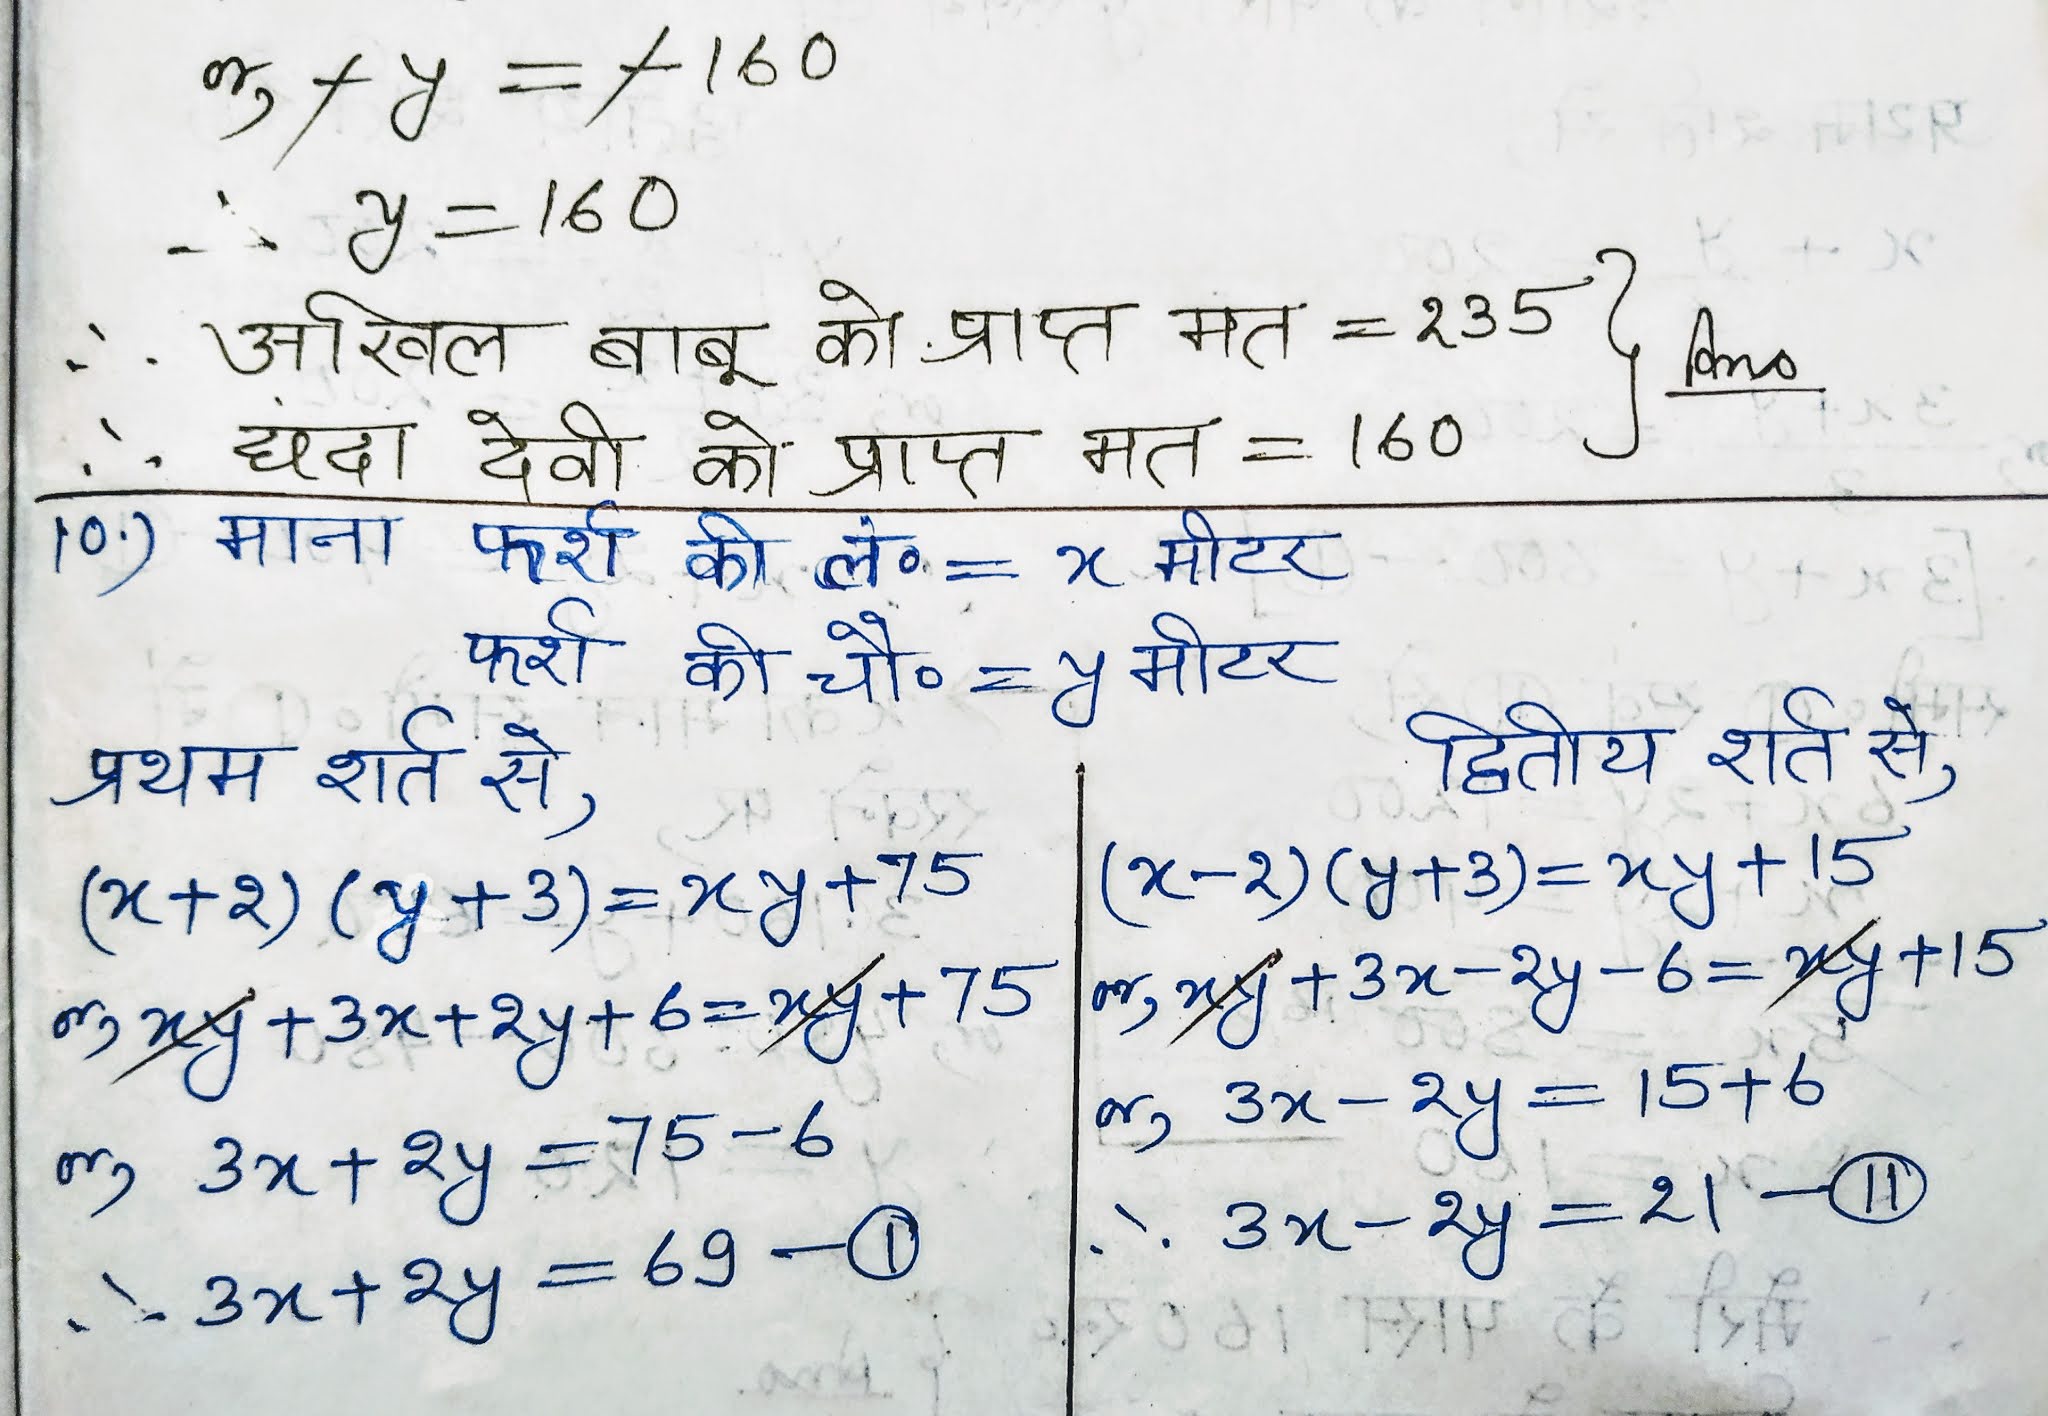 or, -y = -160
∴ y = 160
∴ अखिल बाबू को प्राप्त मत = 235 } Ans
∴ चंदा देवी को प्राप्त मत = 160
10.) माना फर्श की लं॰ = x मीटर
फर्श की चौ॰ = y मीटर
प्रथम शर्त से,
(x+2) (y+3) = xy+75
or, xy+3x+2y+6 = xy+75
or, 3x+2y = 75-6
∴ 3x+2y = 69 — ①
द्वितीय शर्त से,
(x-2)(y+3) = xy+15
or, xy+3x-2y-6 = xy+15
or, 3x-2y = 15+6
∴ 3x-2y = 21 — ⑪